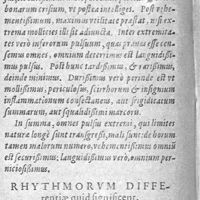 bonarum crisium, vt postea intelliges. Post vehe-
mentissimum, maximè vtilitate præstat, nisi ex-
trema mollicies illi sit adiuncta. Inter extremita-
tes verò inferorum pulsuum, quas primas esse con-
simus omnes, omnium deterrimus est languidissi-
mus pulsus. Post hunc tardissimus, & rarissimus,
deinde minimus. Durissimus verò perinde est vt
mollissimus, periculosus, scirrhorum & insignium
inflammationum consectaneus, aut frigiditatum
summarum, aut squalidissimi marcoris.
In summa, omnes pulsus extremi, qui limites
naturæ longè sunt transgressi, mali sunt: de horum
tamen malorum numero, vehementissimus omniũ
est securissimus: languidissimus verò, omnium per-
niciosissimus.
RHYTHMORVM DIFFE-
rentiæ quid significent.